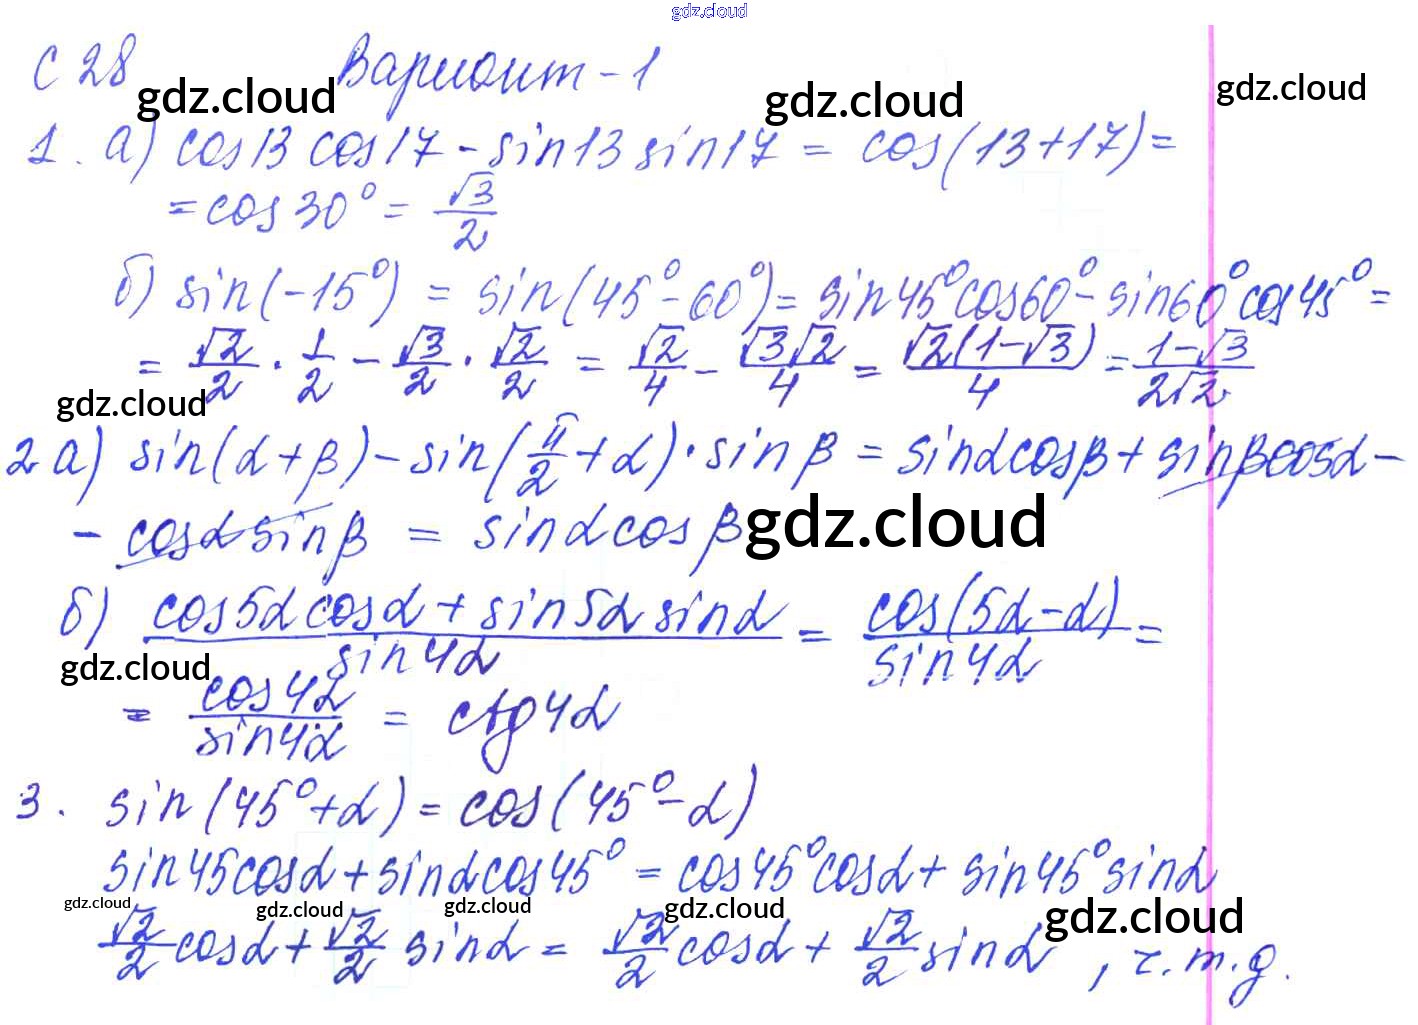 gdz.cloud
С 28 Вариант - 1
gdz.cloud gdz.cloud gdz.cloud
1. а) cos13 cos17 - sin13 sin17 = cos(13+17) =
= cos 30° = √3/2
б) sin(-15°) = sin(45°-60°) = sin45°cos60° - sin60°cos45° =
= √2/2 · 1/2 - √3/2 · √2/2 = √2/4 - √3√2/4 = √2(1-√3)/4 = 1-√3/2√2
gdz.cloud
2 а) sin(α+β) - sin(π/2+α)·sin β = sinαcosβ + sinβcosα -
- cosα sinβ = sinα cos β
gdz.cloud
б) cos5α cosα + sin5α sinα/sin4α = cos(5α-α)/sin4α =
gdz.cloud
= cos4α/sin4α = ctg4α
3. sin(45°+α) = cos(45°-α)
sin45cosα + sinαcos45° = cos45°cosα + sin45°sinα
gdz.cloud gdz.cloud gdz.cloud gdz.cloud gdz.cloud
√2/2 cosα + √2/2 sinα = √2/2 cosα + √2/2 sinα, ч.т.д.